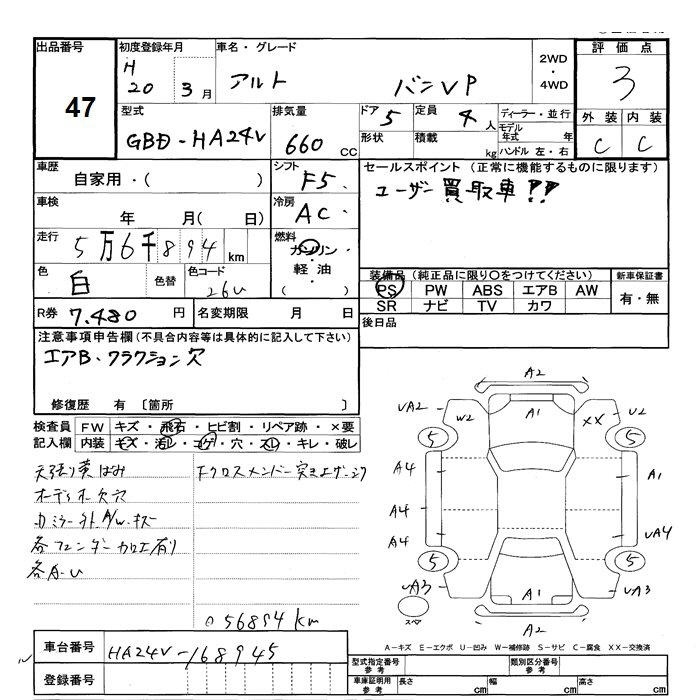 出品番号
47
初度登録年月
H 20 3月
車名・グレード
アルト バンVP
2WD
・
4WD
評価点
3
型式
GBD-HA24V
排気量
660 CC
ドア 5
定員 4人
形状
積載 kg
ディーラー・並行
モデル年式 年
ハンドル 左・右
外装 内装
C C
車歴
自家用・( )
シフト
F5
セールスポイント (正常に機能するものに限ります)
ユーザー買取車!!
車検
年 月( 日)
冷房
AC
走行
5万6千894 km
燃料
ガソリン・
軽油・
( )
色
白
色替
色コード
26U
装備品 (純正品に限り〇をつけてください)
PS PW ABS エアB AW
SR ナビ TV カワ
新車保証書
有・無
R券 7,480 円
名変期限 月 日
後日品
注意事項申告欄(不具合内容等は具体的に記入して下さい)
エアB、クラクション穴
修復歴 有 〔箇所 〕
検査員記入欄
FW キズ・飛石・ヒビ割・リペア跡・×要
内装 キズ・汚レ・コゲ・穴・スレ・キレ・破レ
天張り黄ばみ
オーディオ欠穴
カミラー外A/W、キズ
各フェンダー加工有り
各A・U
Fクロスメンバー突き上げ・
056894km
A2
UA2 W2 A1 XX U2
5 5
A4 A1
A4
A4 UA4
5 5
UA3 A1 UA3
スペア
A2
A-キズ E-エクボ U-凹み W-補修跡 S-サビ C-腐食 XX-交換済
車台番号
HA24V-168945
登録番号
型式指定番号
参考
類別区分番号
参考
車庫証明用
参考
長さ cm 幅 cm 高さ cm